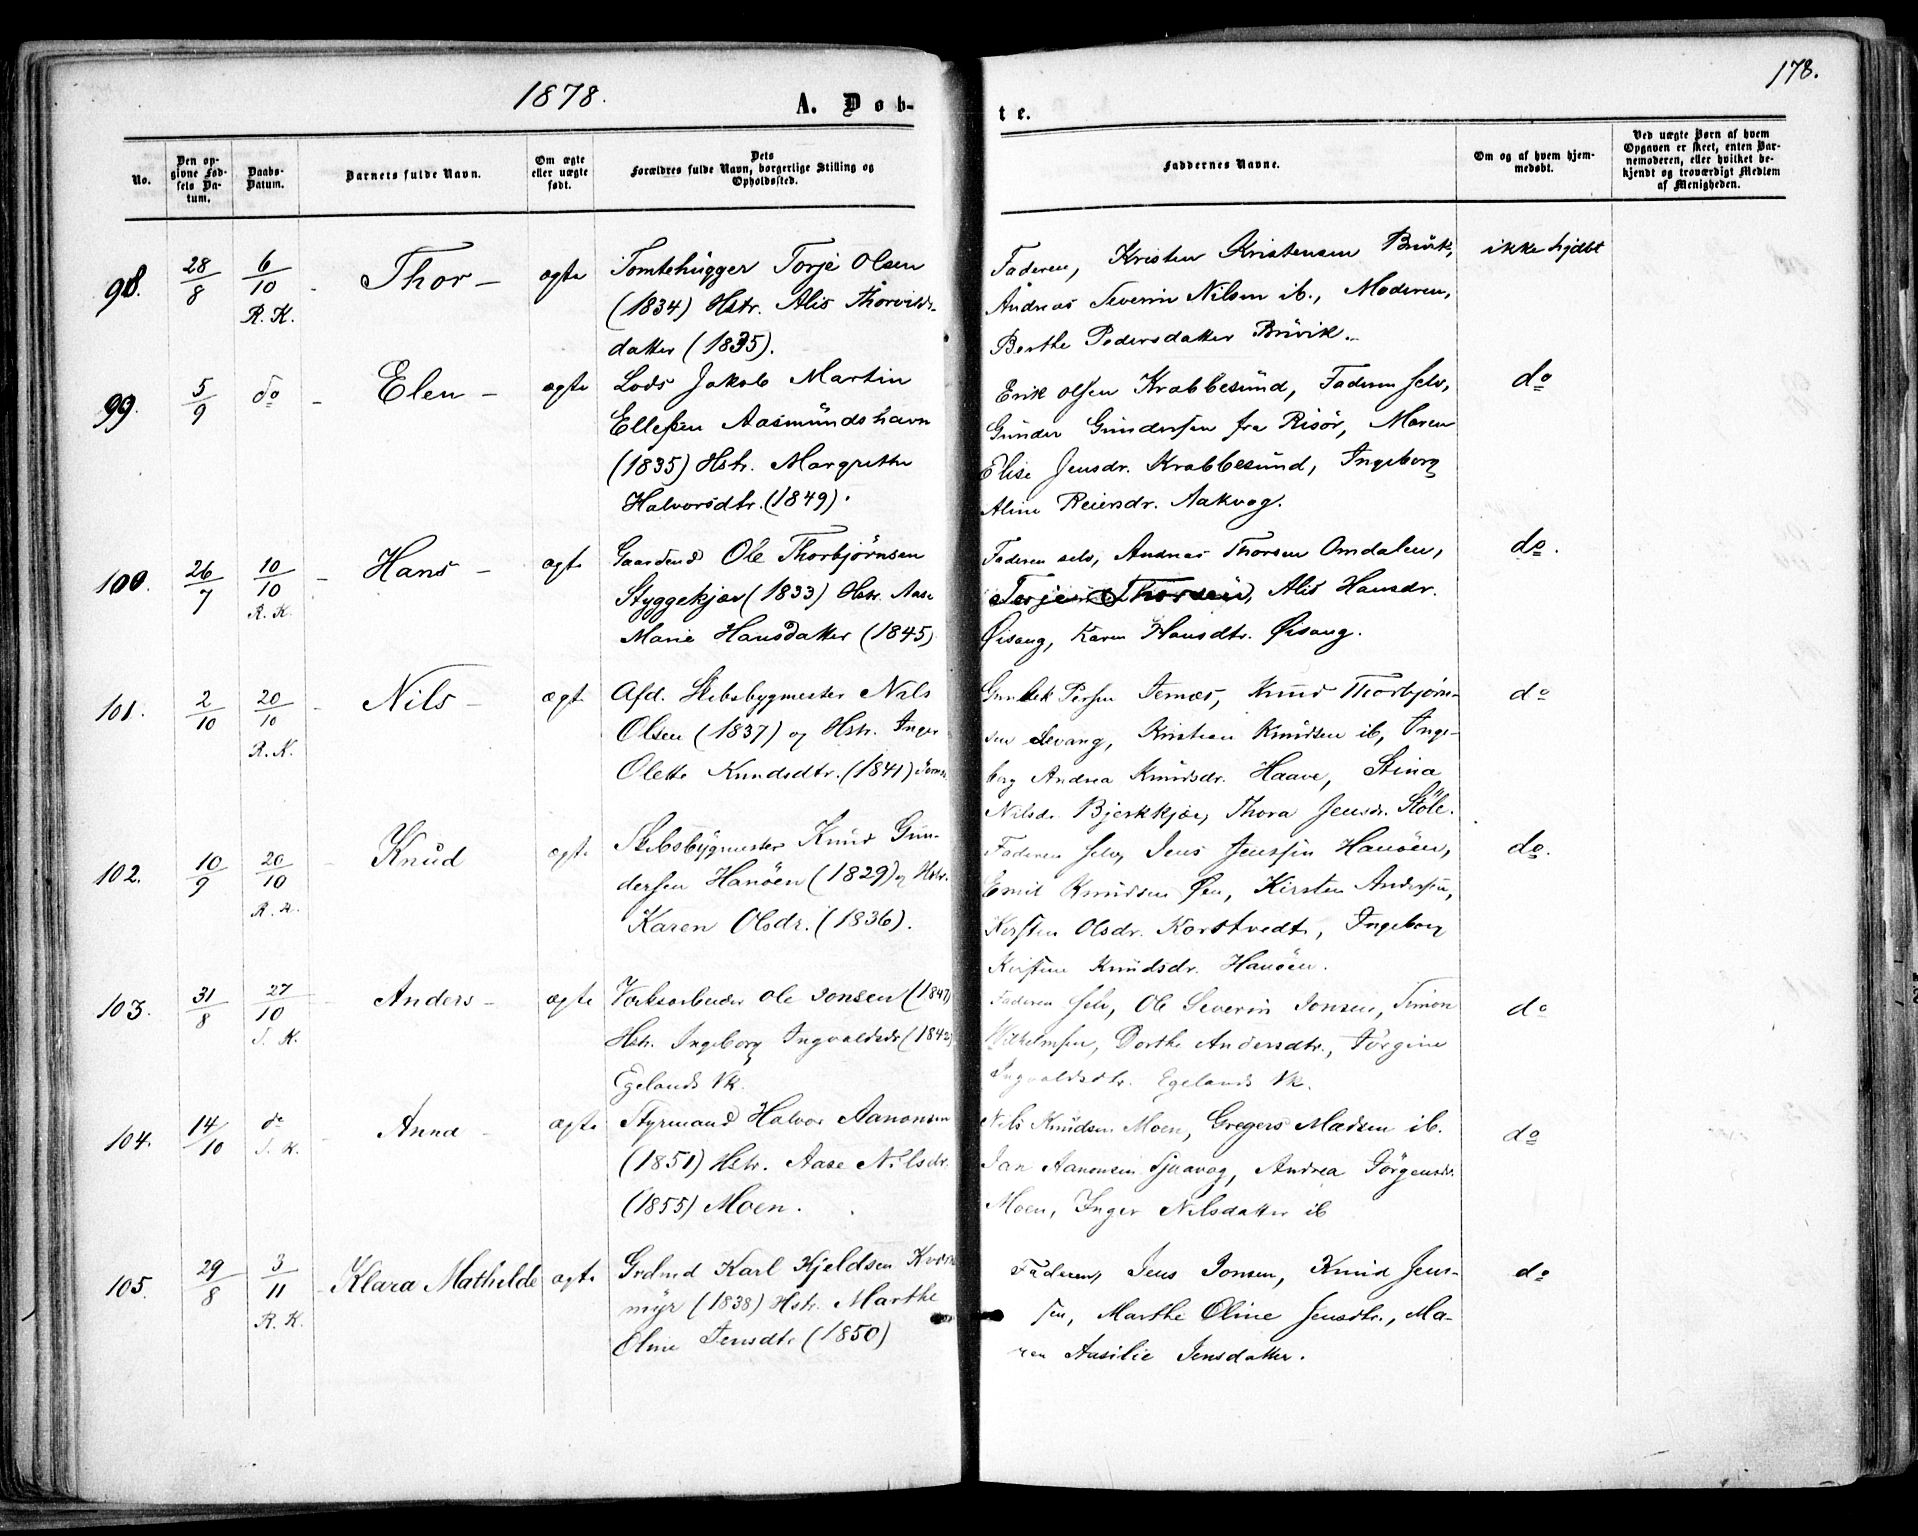 1878.
A. Døb-
te.
178.
No.
Den op-
givne Fød-
sels Da-
tum.
Daabs-
Datum.
Barnets fulde Navn.
Om ægte
eller uægte
født.
Dets
Forældres fulde Navn, borgerlige Stilling og
Opholdssted.
Faddernes Navne.
Om og af hvem hjem-
medøbt.
Ved uægte Børn af hvem
Opgaven er skeet, enten Bar-
nemoderen, eller hvilket be-
kjendt og troværdigt Medlem
af Menigheden.
98. 28/8 6/10 R. K. Thor - ægte
Tomtehugger Torje Olsen
(1834) Hstr. Alis Thorvilds-
datter (1835).
Faderen, Kristen Kristensen Buvik,
Andreas Severin Nilsen ib., Moderen,
Berthe Pedersdatter Buvik.
ikke hjdbt
99. 5/9 do - Elen - ægte
Lods Jakob Martin
Ellefsen Aasmundshavn
(1835) Hstr. Margrethe
Halvorsdtr. (1849).
Erik Olsen Krabbesund, Faderen selv,
Gunder Gundersen fra Risör, Maren
Elise Jensdr. Krabbesund, Ingeborg
Aline Reiersdr. Aakvag.
do
100. 26/7 10/10 R. K. - Hans - ægte
Gaardmd Ole Thorbjørnsen
Styggekjær (1833) Hstr. Aase
Marie Hansdatter (1845)
Faderen selv, Andreas Thorsen Omdalen,
Terjer Thorsen, Alis Hansdr.
Øisang, Karen Hansdtr. Øisang.
do.
101. 2/10 20/10 R. K. - Nils - ægte
Afd. Skibsbygmester Nils
Olsen (1837) og Hstr. Inger
Olette Knudsdtr. (1841)
Gunlek Persen Ternes, Knud Thorbjørn-
sen Levang, Kristian Knudsen ib, Inge-
borg Andrea Knudsdr. Haave, Stina
Nilsdr. Bjerkkjær, Thora Jensdr. Støle.
do
102. 10/9 20/10 R. K. - Knud ægte
Skibsbygmester Knud Gun-
dersen Hanöen (1829) og Hstr.
Karen Olsdr. (1836).
Faderen selv, Jens Jenssen Hanöen,
Emil Knudsen Øen, Kirsten Andersen,
Kirsten Olsdr. Korstvedt, Ingeborg
Kirstine Knudsdr. Hanöen.
do.
103. 31/8 27/10 S. K. - Anders - ægte
Værksarbeider Ole Jonsen (1847)
Hstr. Ingeborg Ingvaldsdr (1842)
Egelands Vk.
Faderen selv, Ole Severin Jonsen, Simon
Wilhelmsen, Dorthe Andersdtr., Jörgine
Ingvaldsdtr. Egelands Vk.
do
104. 14/10 do S. K. - Anna - ægte
Styrmand Halvor Aanonsen
(1851) Hstr. Aase Nilsdr.
(1855) Moen.
Nils Knudsen Moen, Gregers Madsen ib.
Jan Aanonsen Sjuavag, Andrea Jörgensdr.
Moen, Inger Nilsdatter ib
do
105. 29/8 3/11 R. K. - Klara Mathilde ægte
Grdmd Karl Kjeldsen Kvern
myr (1838) Hstr. Marthe
Oline Jensdtr (1850)
Faderen, Jens Jonsen, Knud Jens-
sen, Marthe Oline Jensdtr., Ma-
ren Aasilie Jensdatter.
do